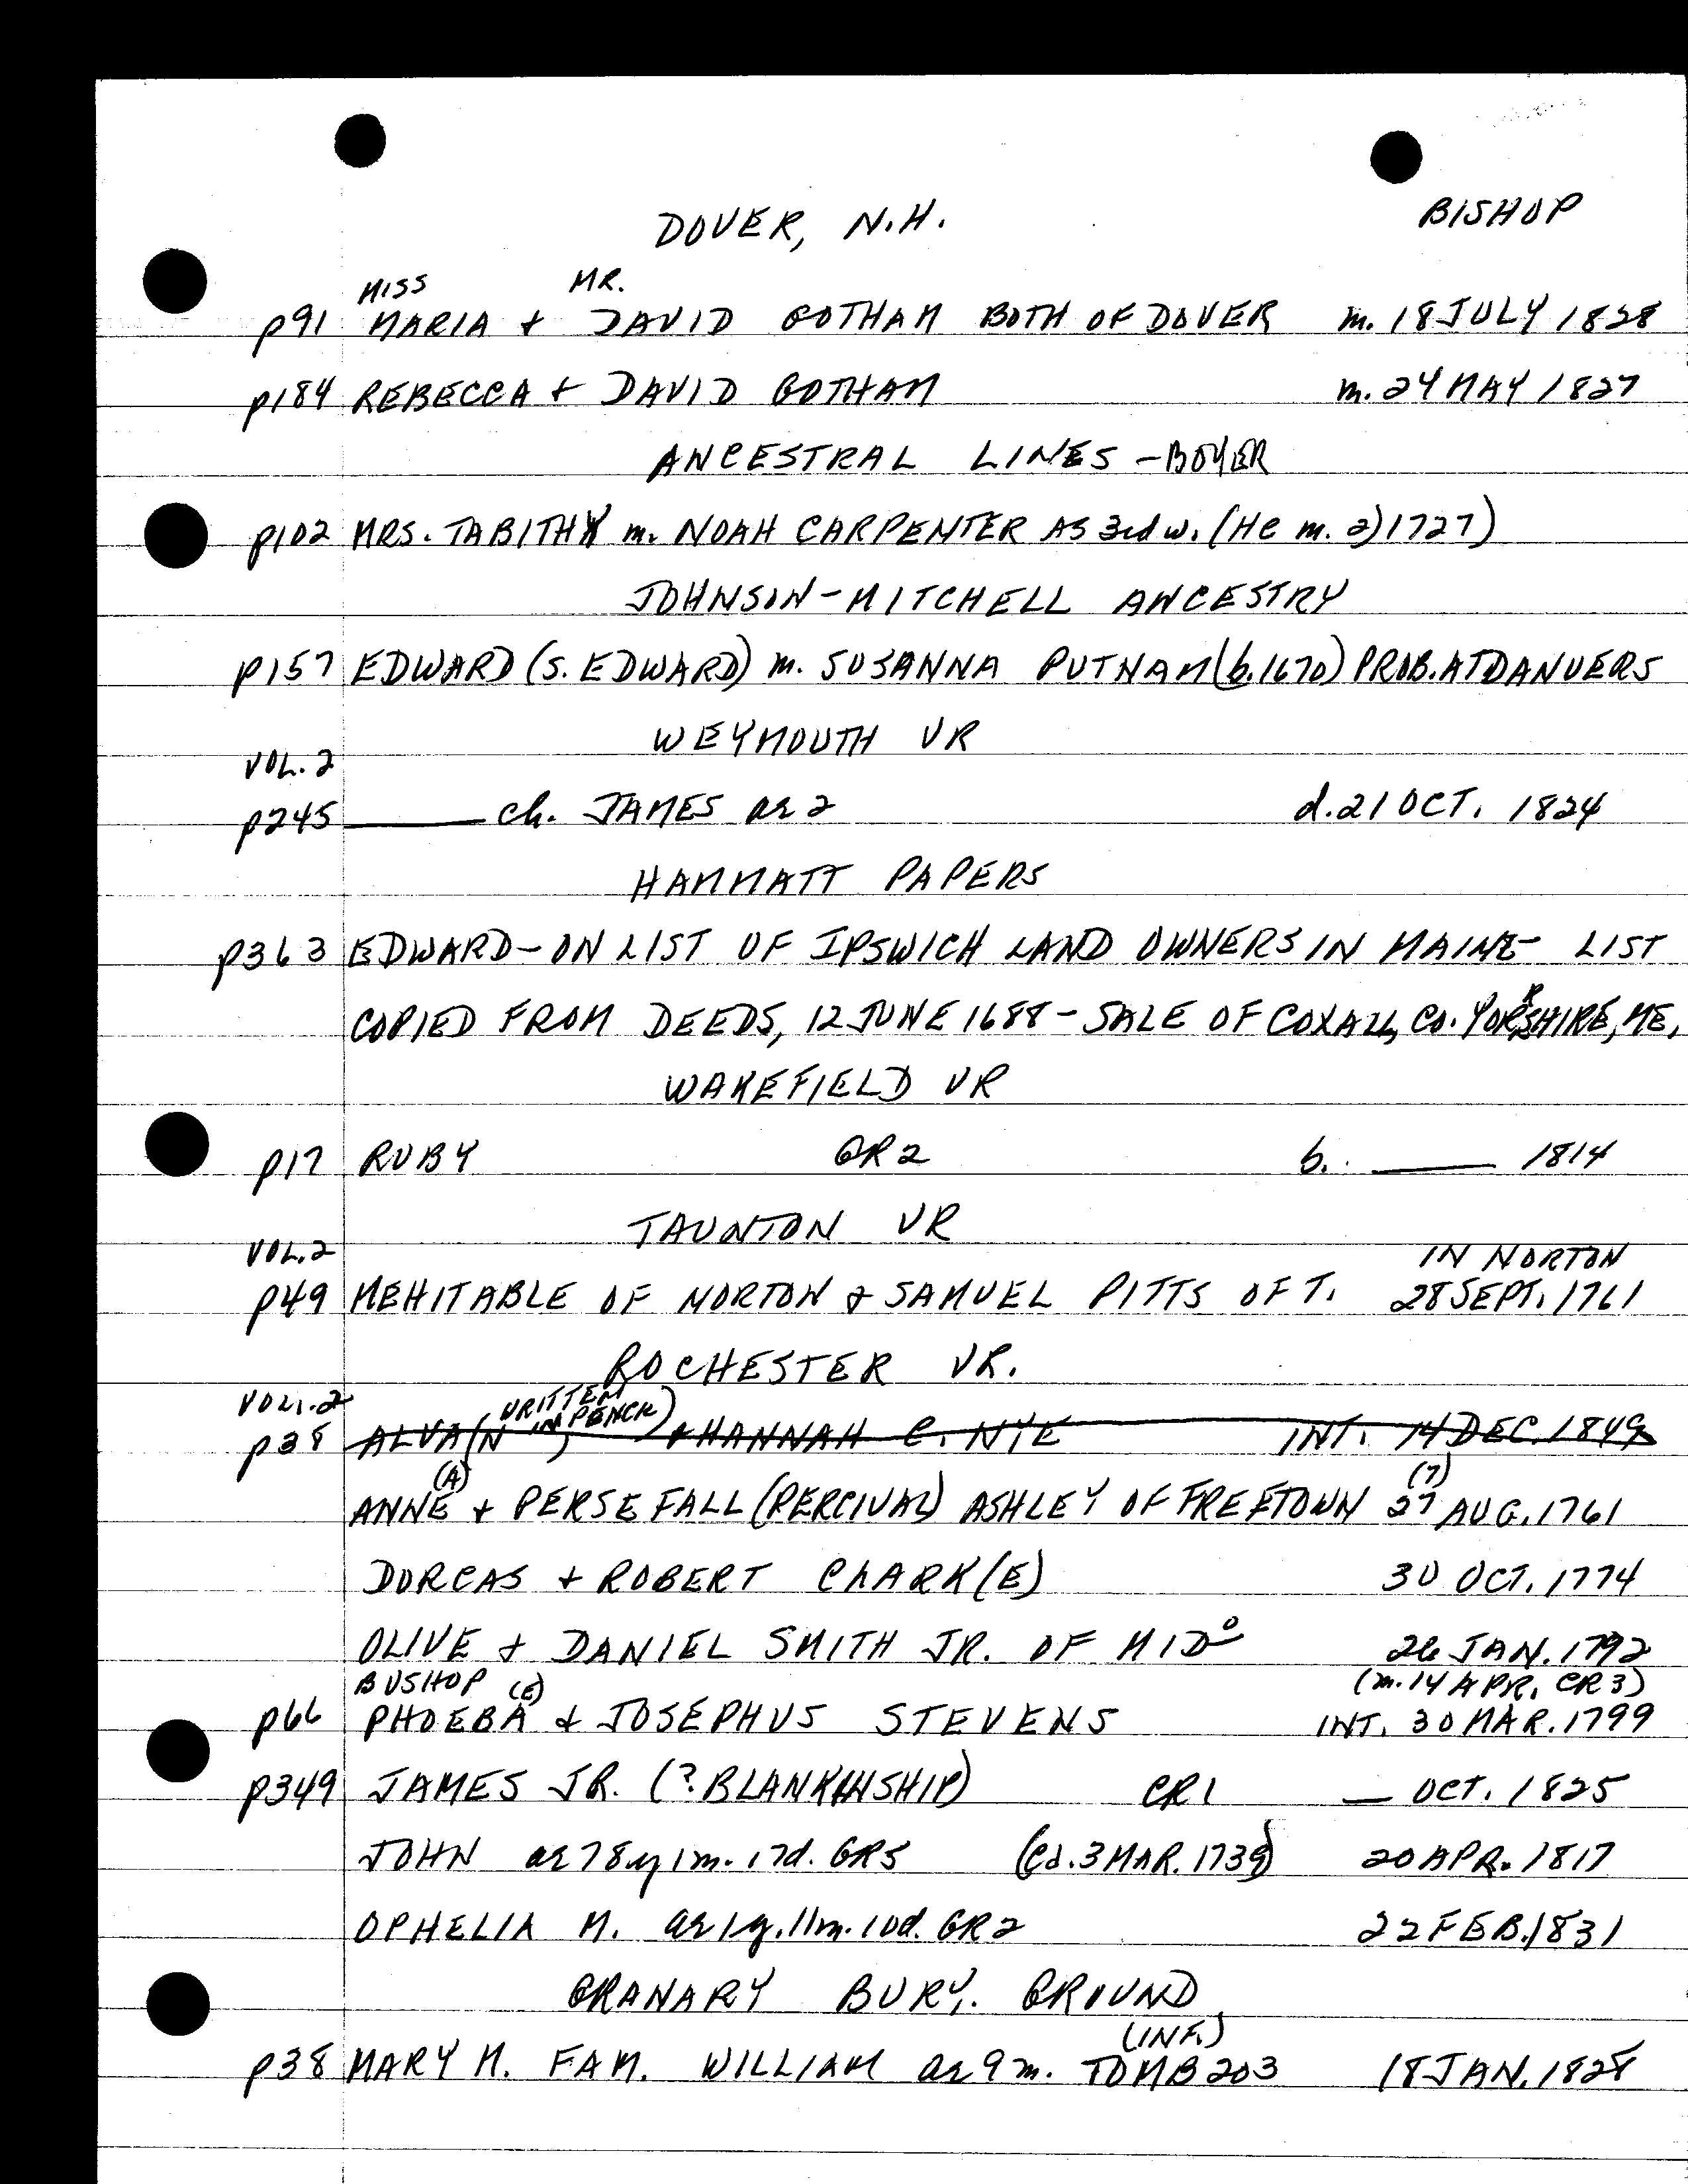 DOVER, N.H. BISHOP
MISS MR.
p91 MARIA + DAVID GOTHAM BOTH OF DOVER m. 18 JULY 1828
p184 REBECCA + DAVID GOTHAM m. 24 MAY 1827
ANCESTRAL LINES - BOYER
p102 MRS. TABITHY m. NOAH CARPENTER AS 3rd w. (He m. 2) 1727)
JOHNSON - MITCHELL ANCESTRY
p157 EDWARD (S. EDWARD) m. SUSANNA PUTNAM (b. 1670) PROB. AT DANVERS
WEYMOUTH VR
VOL. 2
p245 ——— ch. JAMES ae 2 d. 21 OCT. 1824
HAMMATT PAPERS
p363 EDWARD - ON LIST OF IPSWICH LAND OWNERS IN MAINE - LIST
COPIED FROM DEEDS, 12 JUNE 1688 - SALE OF COXALL, CO. YORKSHIRE, ME,
WAKEFIELD VR
p17 RUBY GR2 b. ——— 1814
TAUNTON VR
VOL. 2 IN NORTON
p49 MEHITABLE OF NORTON & SAMUEL PITTS OF T. 28 SEPT. 1761
ROCHESTER VR.
VOL. 2 WRITTEN IN PENCIL
p38 ALVA (N , ) + HANNAH C. NYE INT. 14 DEC. 1849
(A) (7)
ANNE + PERSEFALL (PERCIVAL) ASHLEY OF FREETOWN 27 AUG. 1761
DORCAS + ROBERT CLARK (E) 30 OCT. 1774
OLIVE + DANIEL SMITH JR. OF MIDº 26 JAN. 1792
BUSHOP (E) (m. 14 APR. CR3)
p66 PHOEBA & JOSEPHUS STEVENS INT. 30 MAR. 1799
p349 JAMES JR. (? BLANKINSHIP) CR1 — OCT. 1825
JOHN ae 78y 1m. 17d. GR5 (Cd. 3 MAR. 1739) 20 APR. 1817
OPHELIA M. ae 1y. 11m. 10d. GR2 22 FEB. 1831
GRANARY BURY. GROUND
(INF.)
p38 MARY M. FAM. WILLIAM ae 9m. TOMB 203 18 JAN. 1828